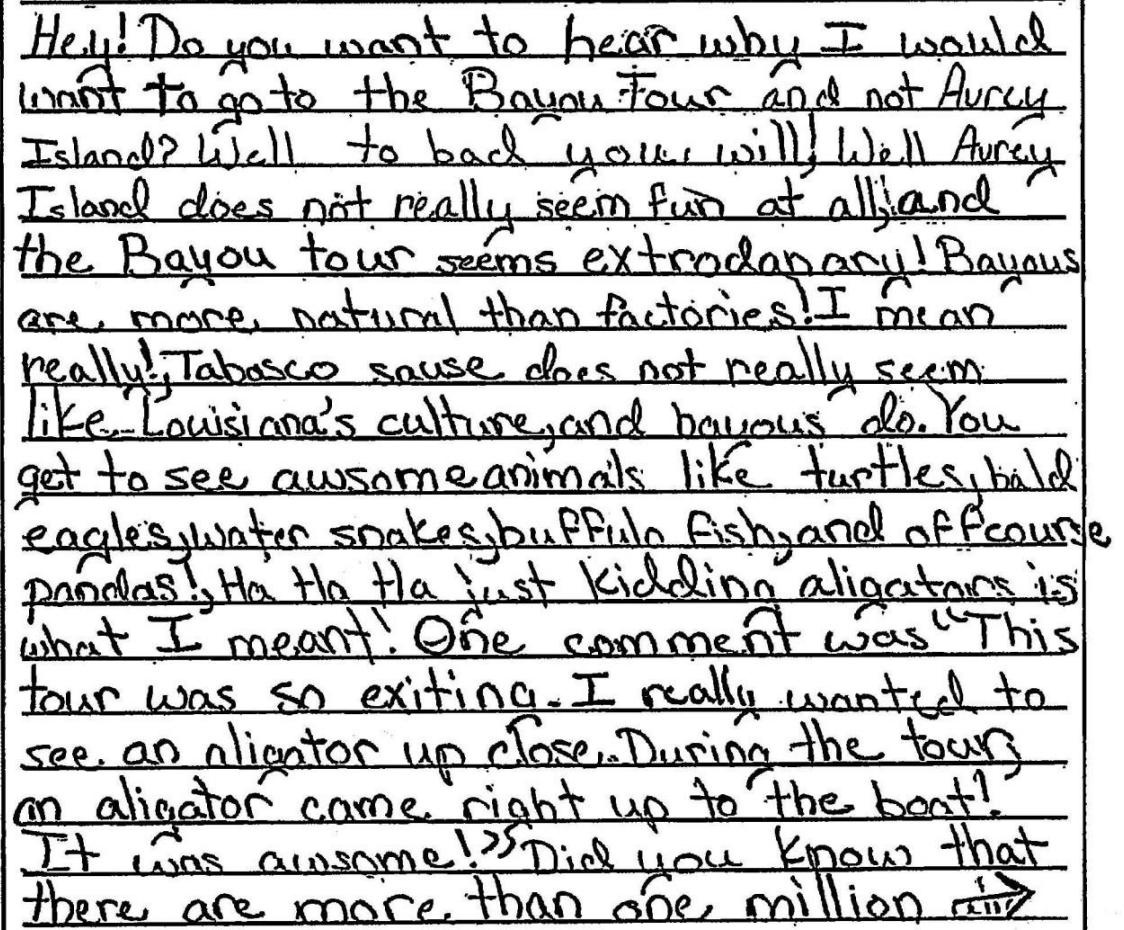 Hey! Do you want to hear why I would
want to go to the Bayou Tour and not Aurey
Island? Well to bad you will! Well Aurey
Island does not really seem fun at all, and
the Bayou tour seems extrodanary! Bayous
are more natural than factories! I mean
really!, Tabasco sause does not really seem
like Louisiana's culture, and bayous do. You
get to see awsome animals like turtles, bald
eagles, water snakes, buffulo fish, and offcourse
pandas!, Ha Ha Ha just kidding aligators is
what I meant! One comment was "This
tour was so exiting. I really wanted to
see an aligator up close. During the tour,
an aligator came right up to the boat!
It was awsome!" Did you know that
there are more than one million